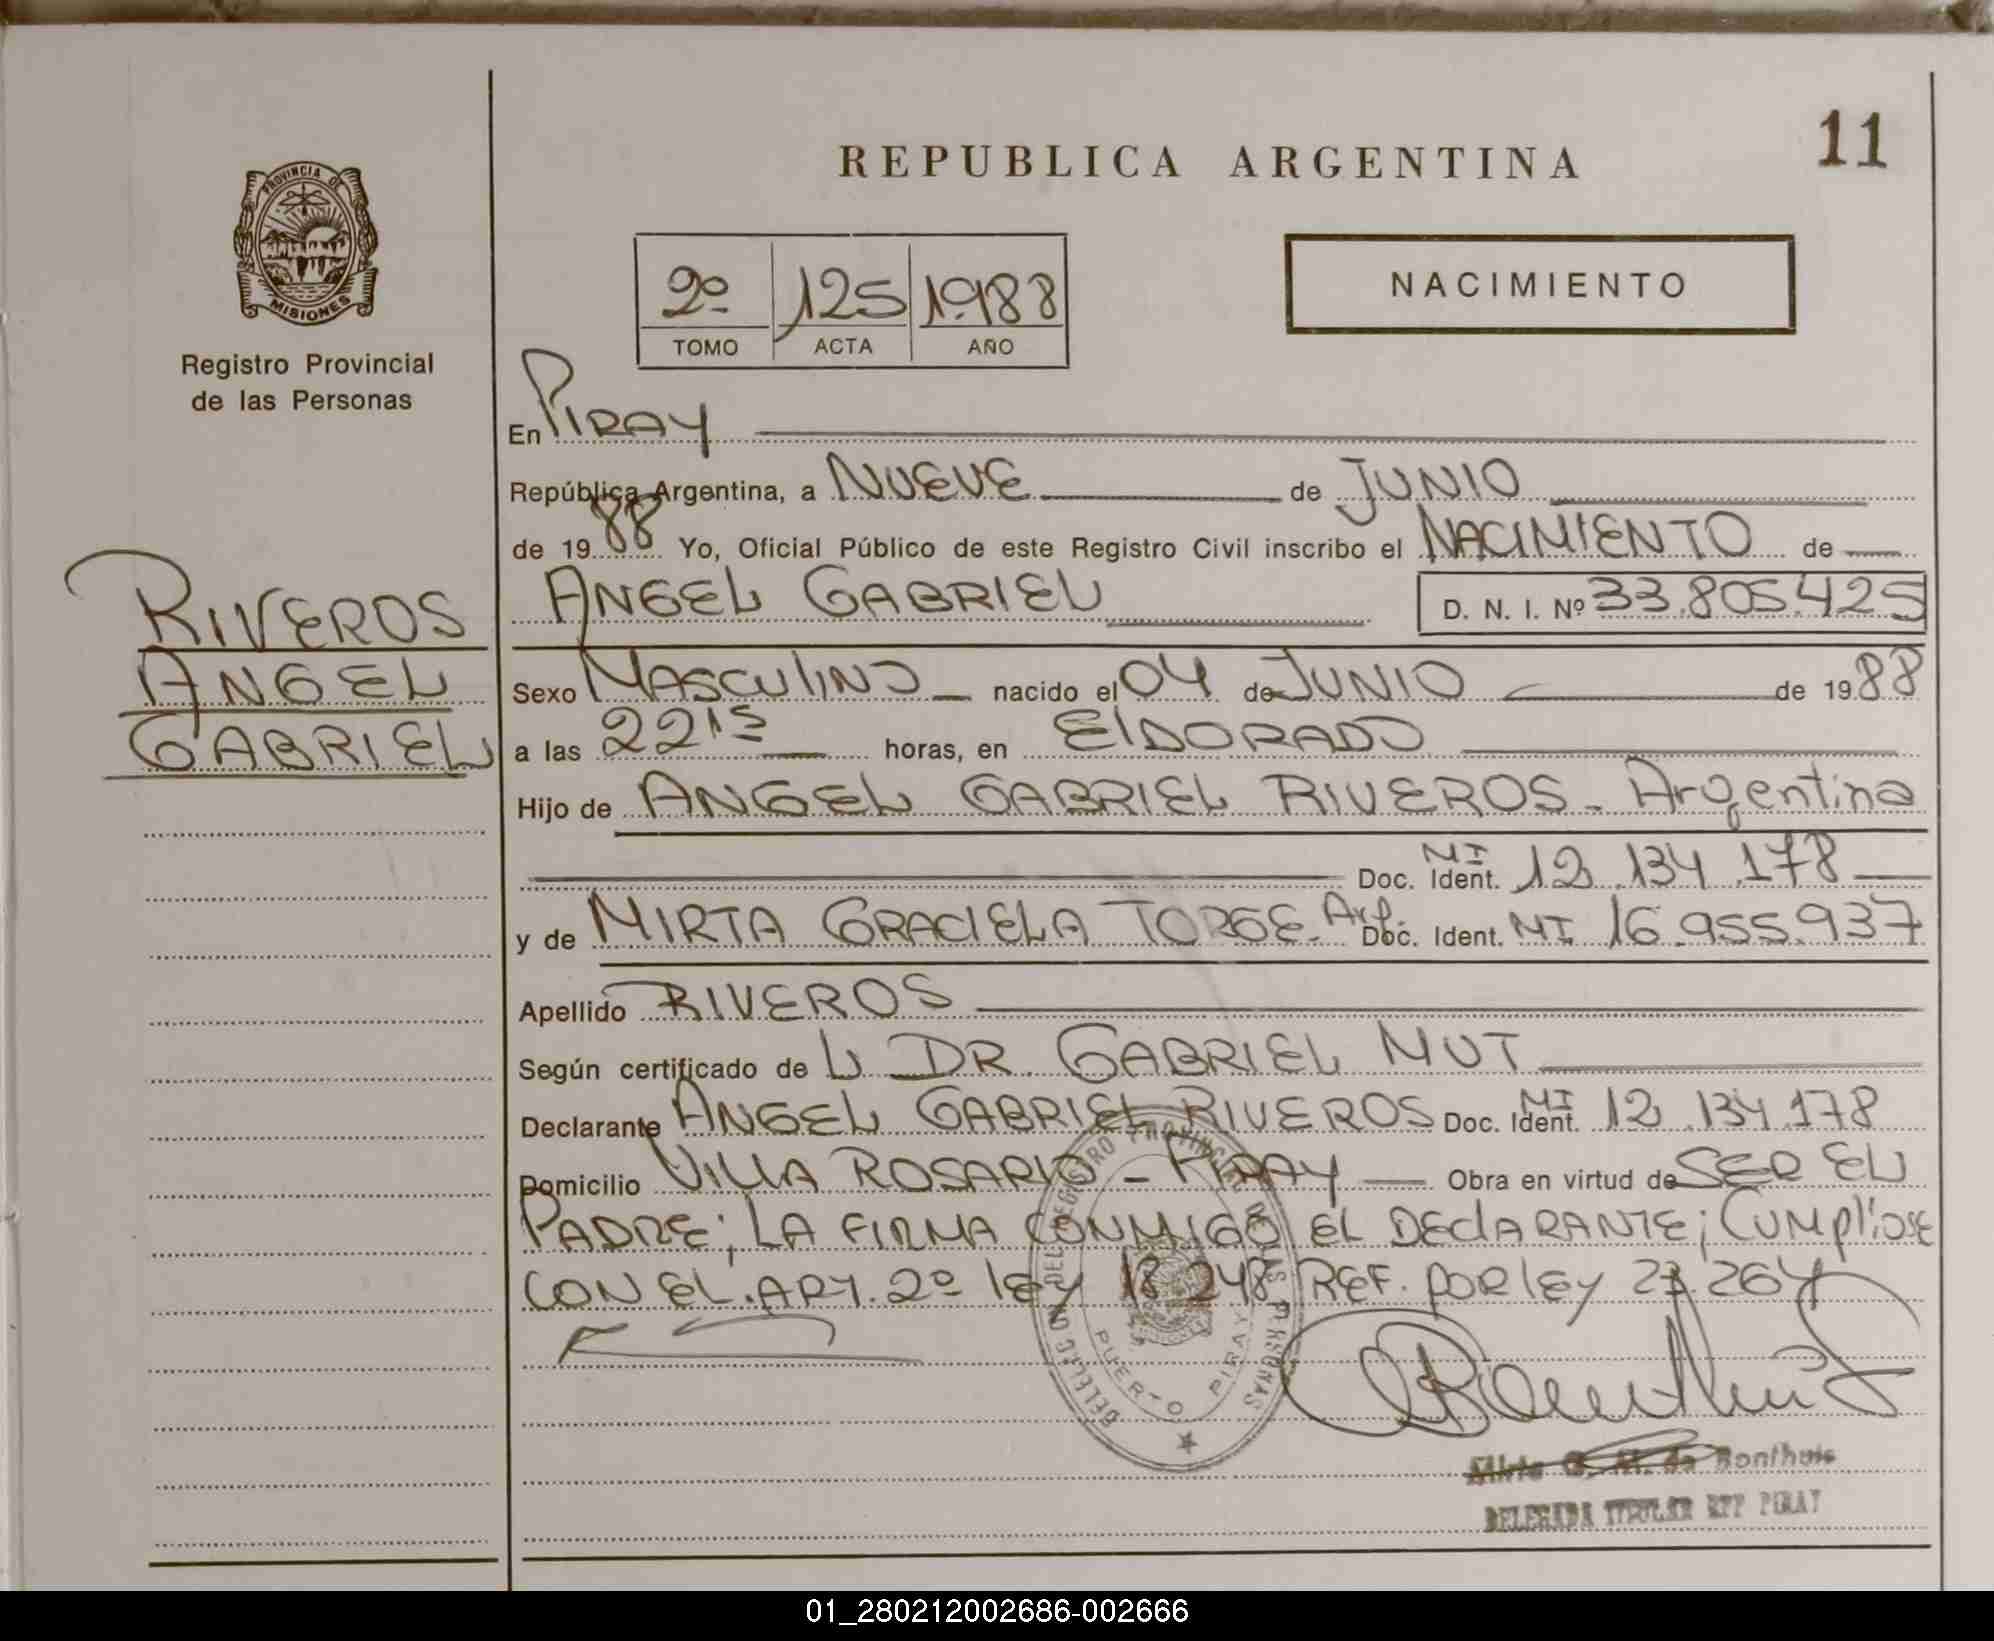 11
REPUBLICA ARGENTINA
PROVINCIA DE
MISIONES
Registro Provincial
de las Personas
2º 125 1.988
TOMO ACTA AÑO
NACIMIENTO
RIVEROS
ANGEL
GABRIEL
En PIRAY
República Argentina, a NUEVE de JUNIO
de 19 88 Yo, Oficial Público de este Registro Civil inscribo el NACIMIENTO de
ANGEL GABRIEL D. N. I. Nº 33.805.425
Sexo MASCULINO nacido el 04 de JUNIO de 19 88
a las 22 15 horas, en ElDORADO
Hijo de ANGEL GABRIEL RIVEROS - Argentina
Doc. Ident. MI 12.134.178
y de MIRTA GRACIELA TORGE. Arg. Doc. Ident. MI 16.955.937
Apellido RIVEROS
Según certificado de L DR. GABRIEL MUT
Declarante ANGEL GABRIEL RIVEROS Doc. Ident. MI 12.134.178
Domicilio VILLA ROSARIO - PIRAY Obra en virtud de SER EL
PADRE; LA FIRMA CONMIGO EL DEClARANTE; CUMPlióSE
CON EL. ART. 2º lEY 18 248 REF. POR lEY 23.264
REGISTRO PROVINCIAL DE LAS PERSONAS
PUERTO PIRAY
Mirta G. M. de Bonthuis
DELEGADA TITULAR RPP PIRAY
01_280212002686-002666